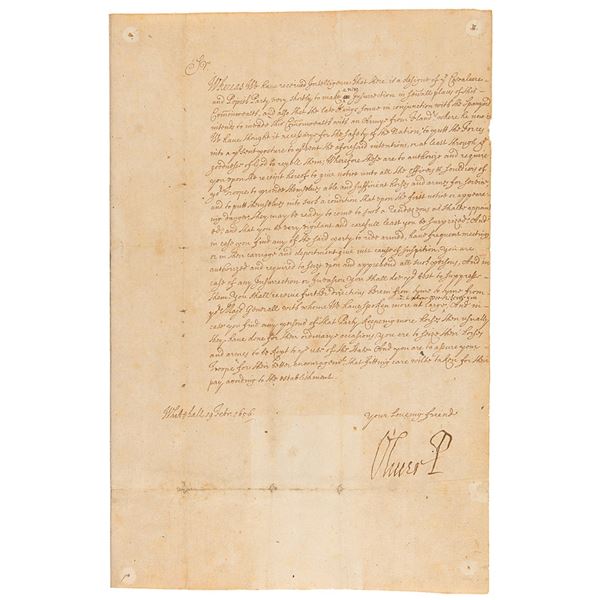 Sr
Whereas We have received Intelligence that there is a designe of ye Cavaleere
and Popish Party very shortly to make an Insurrection in severall places of this
Commonwealth, and alsoe that the late Kings sonne in conjunction with the Spanyard
intends to invade this Commonwealth with an Army from where he now is
We have thought it necessary for the safety of the Nation, to putt the Forces
into a posture to prevent the aforesaid intentions, or at least through ye
goodness of God to resist them; Wherefore these are to authorize and require
you upon the receipt hereof to give notice unto all the officers & souldiers of
yr Troope to provide themselves able and sufficient horses and armes for service
and to putt themselves into such a condition that upon the first notice or appeare
ing danger they may be ready to come to such a Rendezvous as shalbe appoint
ed; and that you be very vigilant and carefull least you be surprized; And
in case you find any of the said party to ride armed, have frequent meetings
or in their carriage and deportment give just cause of suspition, you are
authorized and required to seize upon and apprehend all such persons, And in
case of any Insurrection or Invasion you shall doe yr best to suppress
them, you shall receive further directions herein from tyme to tyme from
yr Major Generall with whome We have spoken more at large. And in
case you find any persons of that Party keeping more horses then usually
they have done for their ordinary occasions, you are to seize their horses
and armes to be kept to ye use of the State. And you are to assure your
Troope for their better encouragemt. that fitting care wilbe taken for their
pay according to the establishment.
Whitehall Febr. 1656 Your loveing friend
Oliver P